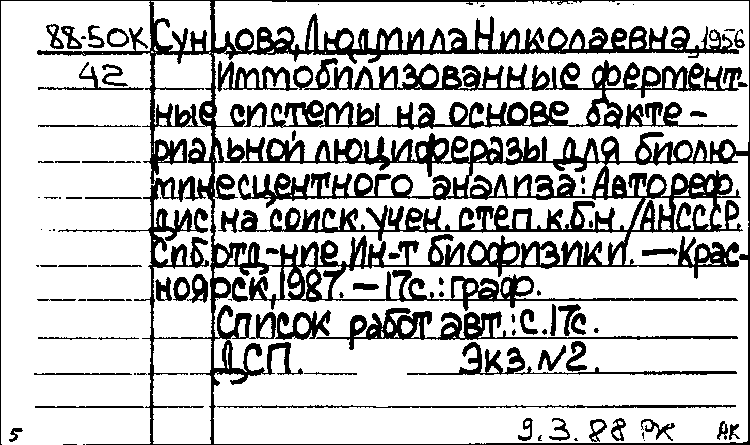 88-50К Сунцова, Людмила Николаевна, 1956
42 Иммобилизованные фермент-
ные системы на основе бакте-
риальной люциферазы для биолю-
минесцентного анализа: Автореф.
дис. на соиск. учен. степ. к.б.н. / АН СССР.
Сиб. отд-ние. Ин-т биофизики. — Крас-
ноярск, 1987. — 17с.: граф.
Список работ авт.: с. 17с.
ДСП. Экз. N2.
5 9.3.88 РЖ АК